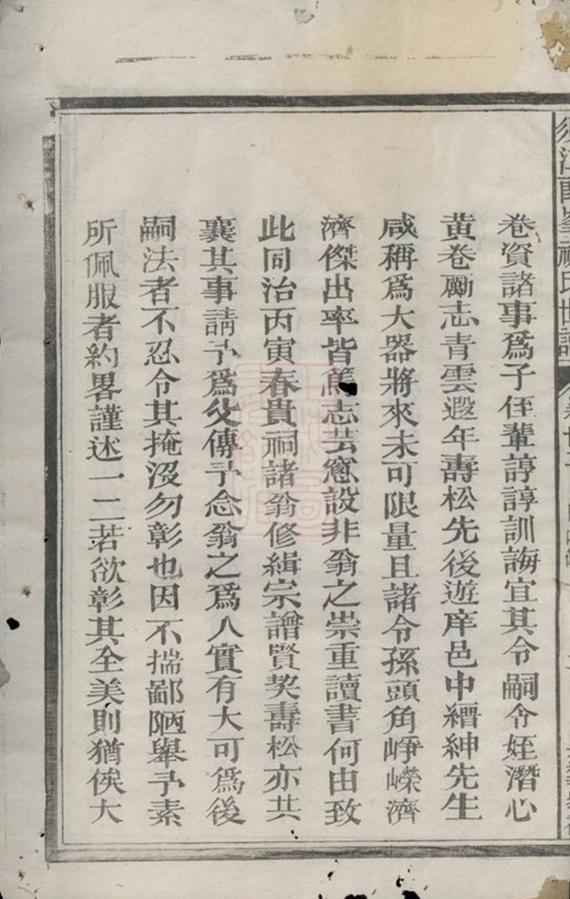 須江
祝氏世譜
卷資諸事爲子侄輩諄諄訓誨宜其令嗣令姪潛心
黃卷勵志青雲遐年壽松先後遊庠邑中縉紳先生
咸稱爲大器將來未可限量且諸令孫頭角崢嶸濟
濟傑出率皆篤志芸窻設非翁之崇重讀書何由致
此同治丙寅春貴祠諸翁修緝宗譜賢契壽松亦共
襄其事請予爲父傳予念翁之爲人實有大可爲後
嗣法者不忍令其掩沒勿彰也因不揣鄙陋舉予素
所佩服者約畧謹述一二若欲彰其全美則猶俟大